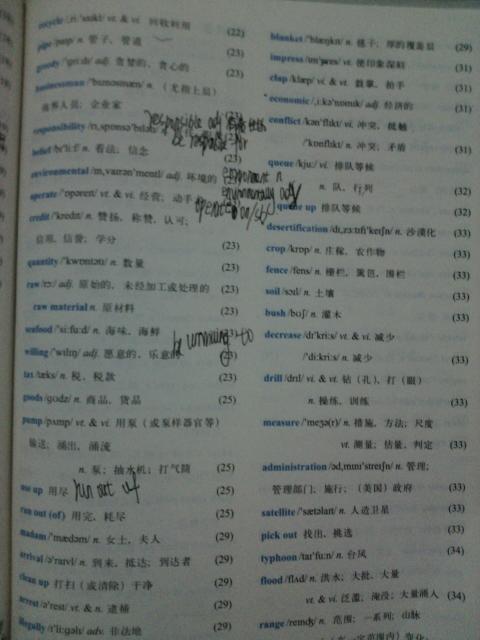 recycle /ˌriːˈsaɪkl/ vt. & vi. 回收利用 (22)
pipe /paɪp/ n. 管子，管道 (23)
greedy /ˈɡriːdi/ adj. 贪婪的，贪心的 (23)
businessman /ˈbɪznəsmæn/ n. (尤指上层)
商界人员；企业家
responsible adj
responsibility
be
belief /bɪˈliːf/ n. 看法，信念
environmental adj. 环境的
n
environmentally adj
operate /ˈɒpəreɪt/ vt. & vi. 经营；动手
credit /ˈkredɪt/ n. 赞扬，称赞，认可；
信用，信誉，学分 (23)
quantity /ˈkwɒntəti/ n. 数量 (23)
raw /rɔː/ adj. 原始的，未经加工或处理的 (23)
raw material n. 原材料
seafood /ˈsiːfuːd/ n. 海味，海鲜 (23)
willing /ˈwɪlɪŋ/ adj. 愿意的，乐意的 (23)
be unwilling to
tax /tæks/ n. 税，税款 (23)
goods /ɡʊdz/ n. 商品，货品 (25)
pump /pʌmp/ vt. & vi. 用泵 (或泵样器官等)
输送；涌出，涌流
n. 泵；抽水机；打气筒 (25)
use up 用尽 run out of (25)
run out (of) 用完，耗尽 (25)
madam /ˈmædəm/ n. 女士，夫人 (29)
arrival /əˈraɪvl/ n. 到来，抵达；到达者 (29)
clean up 打扫 (或清除) 干净 (29)
arrest /əˈrest/ vt. & n. 逮捕 (29)
illegally /ɪˈliːɡəli/ adv. 非法地 (29)
blanket /ˈblæŋkɪt/ n. 毯子；厚的覆盖层 (29)
impress /ɪmˈpres/ vt. 使印象深刻 (31)
clap /klæp/ vi. & vt. 鼓掌，拍手 (31)
economic /ˌiːkəˈnɒmɪk/ adj. 经济的 (31)
conflict /kənˈflɪkt/ vi. 冲突，抵触
/ˈkɒnflɪkt/ n. 冲突；矛盾 (31)
queue /kjuː/ vi. 排队等候
n. 队，行列 (32)
queue up 排队等候 (32)
desertification /dɪˌzɜːtɪfɪˈkeɪʃn/ n. 沙漠化 (33)
crop /krɒp/ n. 庄稼，农作物 (33)
fence /fens/ n. 栅栏，篱笆，围栏 (33)
soil /sɔɪl/ n. 土壤 (33)
bush /bʊʃ/ n. 灌木 (33)
decrease /dɪˈkriːs/ vt. & vi. 减少
/ˈdiːkriːs/ n. 减少 (33)
drill /drɪl/ vi. & vt. 钻 (孔)，打 (眼)
n. 操练，训练 (33)
measure /ˈmeʒə(r)/ n. 措施，方法；尺度
vt. 测量；估量，判定 (33)
administration /ədˌmɪnɪˈstreɪʃn/ n. 管理；
管理部门；施行；(美国) 政府 (33)
satellite /ˈsætəlaɪt/ n. 人造卫星 (33)
pick out 找出，挑选 (33)
typhoon /taɪˈfuːn/ n. 台风 (34)
flood /flʌd/ n. 洪水；大批，大量
vt. & vi. 泛滥；淹没；大量涌入 (34)
range /reɪndʒ/ n. 范围；一系列；山脉